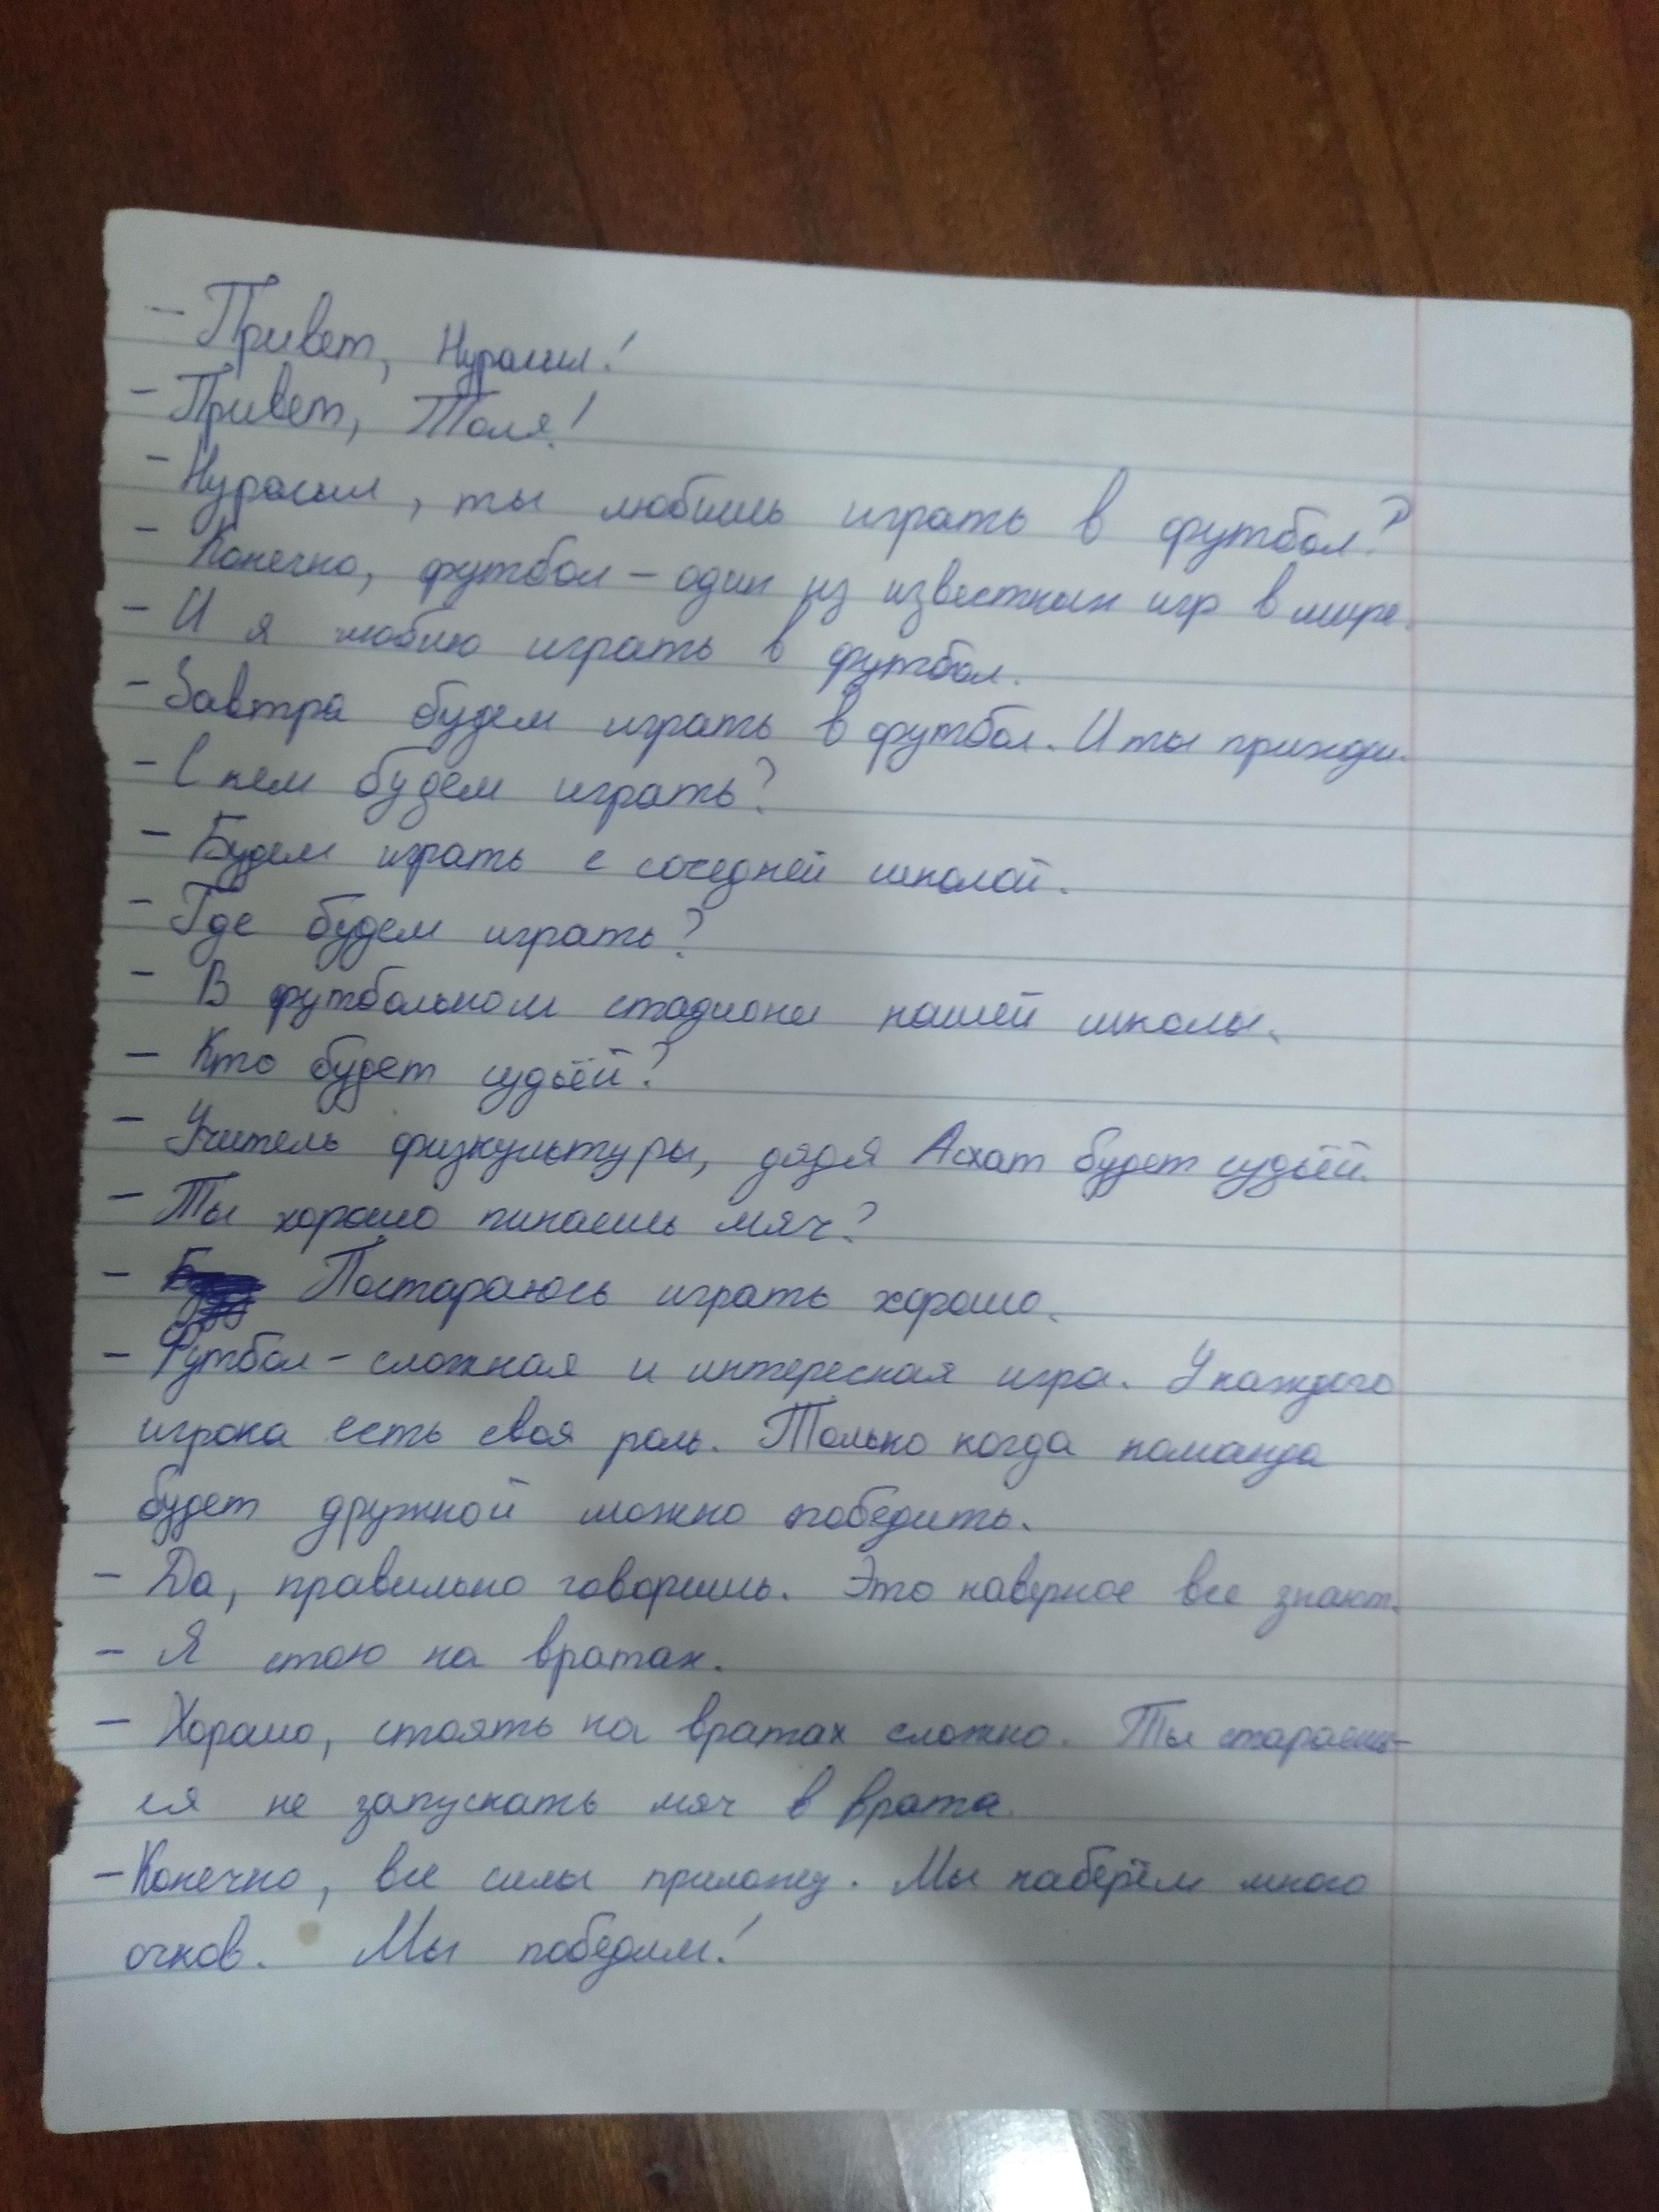 - Привет, Нурасыл!
- Привет, Толя!
- Нурасыл, ты любишь играть в футбол?
- Конечно, футбол - один из известных игр в мире.
- И я люблю играть в футбол.
- Завтра будем играть в футбол. И ты приходи.
- С кем будем играть?
- Будем играть с соседней школой.
- Где будем играть?
- В футбольном стадионе нашей школы.
- Кто будет судьёй?
- Учитель физкультуры, дядя Асхат будет судьёй.
- Ты хорошо пинаешь мяч?
- Постараюсь играть хорошо.
- Футбол - сложная и интересная игра. У каждого
игрока есть своя роль. Только когда команда
будет дружной можно победить.
- Да, правильно говоришь. Это наверное все знают.
- Я стою на вратах.
- Хорошо, стоять на вратах сложно. Ты стараешь-
ся не запускать мяч в врата.
- Конечно, все силы приложу. Мы наберём много
очков. Мы победим!